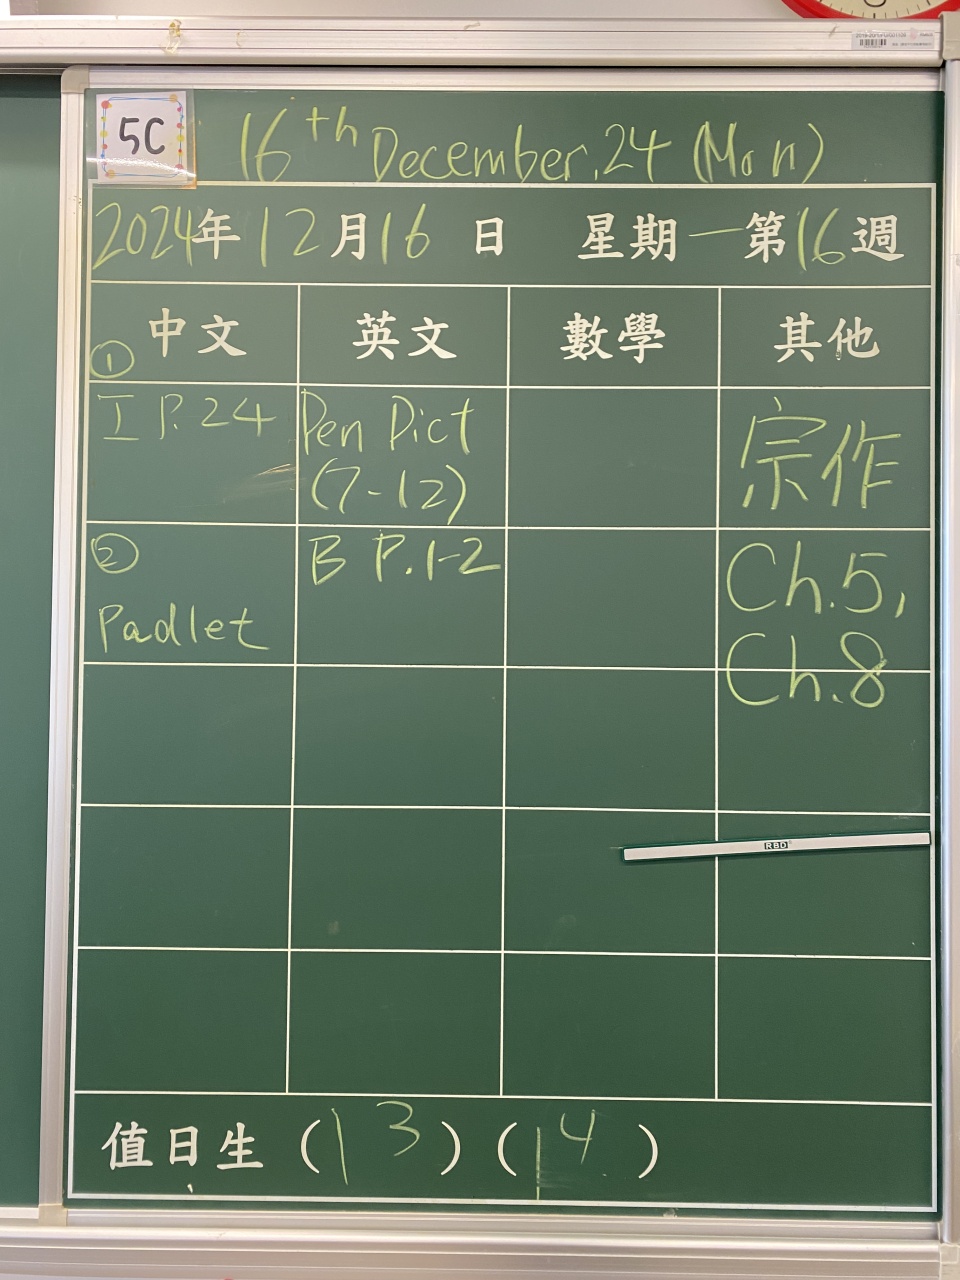 5C
16th December, 24 (Mon)
2024年 12月16日 星期一第16週
中文 英文 數學 其他
①
工 P.24
Pen Dict
(7-12)
宗作
②
Padlet
B P.1-2
Ch.5,
Ch.8
RBD
值日生 (13) (14)